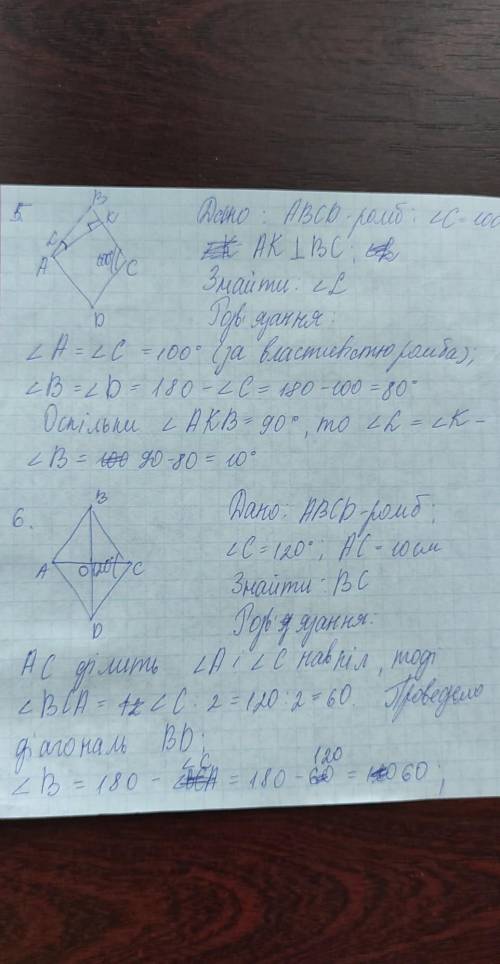 5
B
K
L
A
100°
C
D
Дано: ABCD - ромб; ∠C = 100
AK ⊥ BC;
Знайти: ∠L
Розв'язання:
∠A = ∠C = 100° (за властивістю ромба);
∠B = ∠D = 180 - ∠C = 180 - 100 = 80°
Оскільки ∠AKB = 90°, то ∠L = ∠K -
∠B = 90 - 80 = 10°
6.
B
A
O
120°
C
D
Дано: ABCD - ромб;
∠C = 120°; AC = 10 см
Знайти: BC
Розв'язання:
AC ділить ∠A і ∠C навпіл, тоді
∠BCA = ∠C : 2 = 120 : 2 = 60. Проведемо
діагональ BD;
∠B = 180 - ∠C = 180 - 120 = 60;